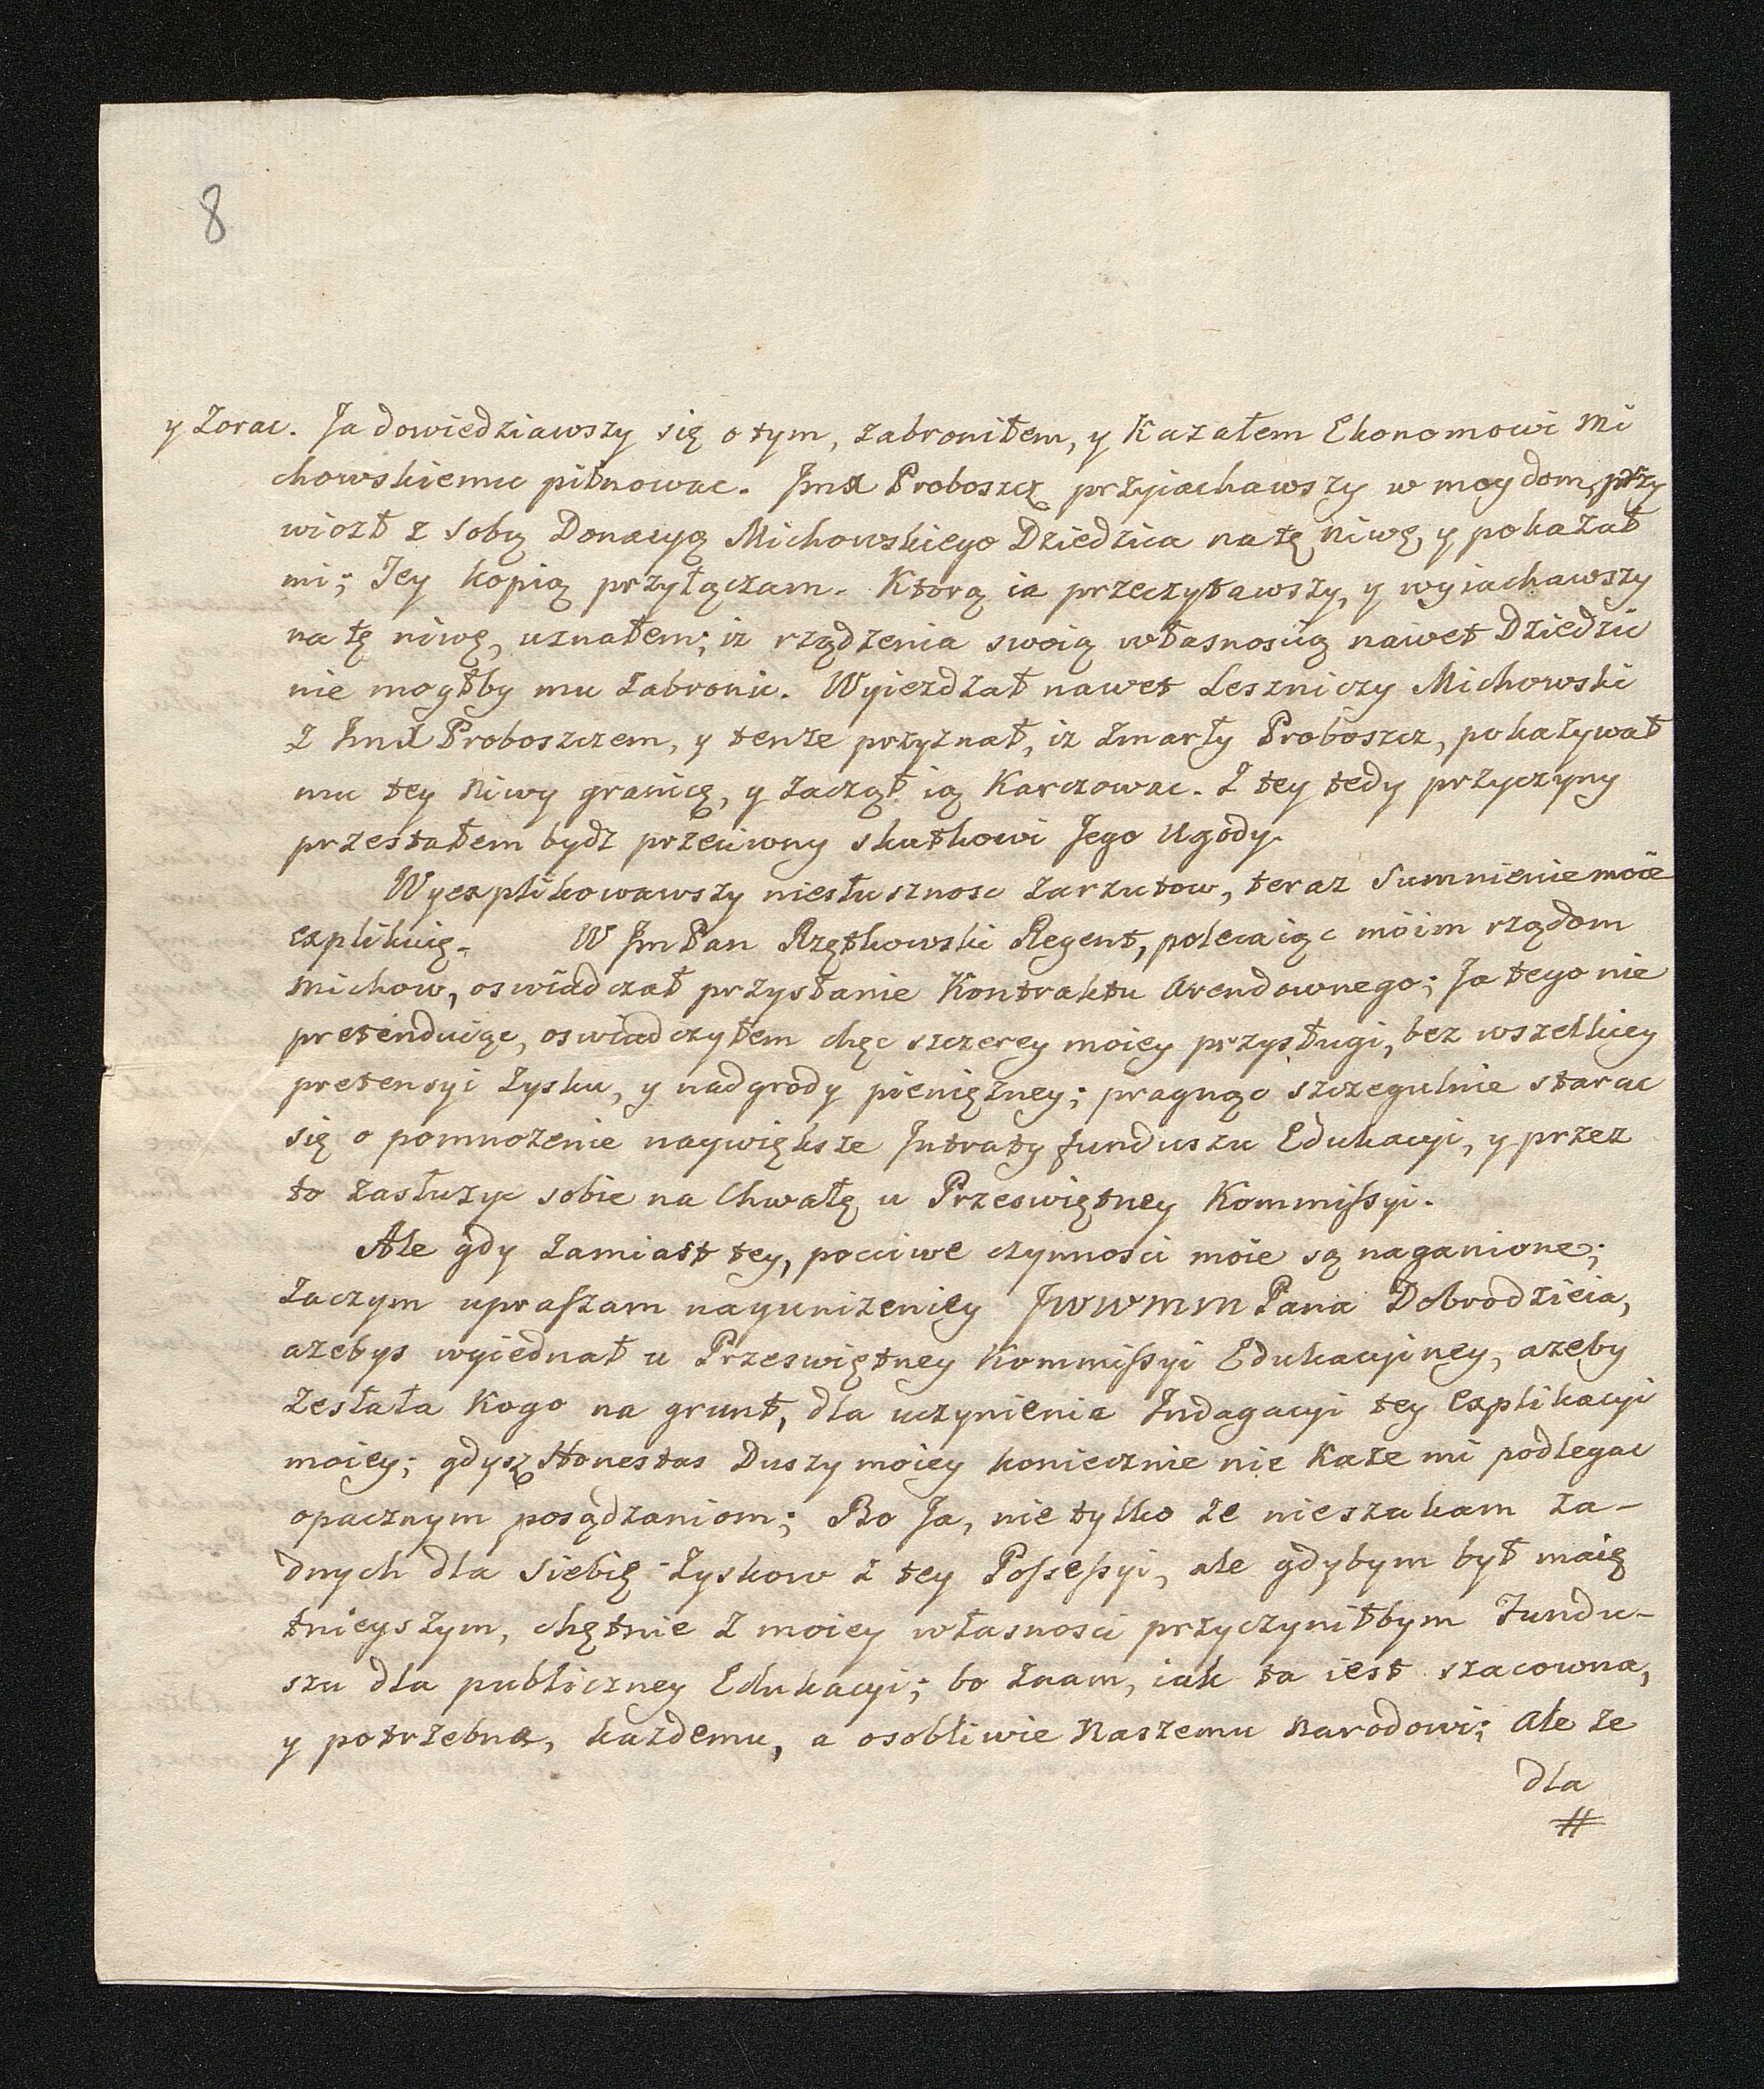 8
y zorac. Ja dowiedziawszy się o tym, zabroniłem, y Kazałem Ekonomowi Mi
chowskiemu pilnowac. JmX Proboszcz przyiachawszy w moy dom, przy
wiozł z sobą Donacyą Michowskiego Dziedzica na tę Niwę, y pokazał
mi; Jey kopią przyłączam. Ktorą ia przeczytawszy, y wyiachawszy
na tę niwę, uznałem; iz rządzenia swoią własnoscią nawet Dziedzic
nie mogłby mu zabronic. Wyiezdzał nawet Leszniczy Michowski
z JmX Proboszczem, y tenze przyznał, iz zmarły Proboszcz, pokazywał
mu tey Niwy granicę, y zaczął ią Karczowac. Z tey tedy przyczyny
przestałem bydz przeciwny skutkowi Jego Ugody.
Wyexplikowawszy niesłusznosc zarzutow, teraz Sumnienie moie
explikuię. W JmPan Rzętkowski Regent, polecaiąc moim rządom
Michow, oswiadczał przysłanie Kontraktu Arendownego; Ja tego nie
pretenduiąc, oswiadczyłem chęc szczerey moiey przysługi, bez wszelkiey
pretensyi zysku, y nadgrody pienięzney; pragnąc szczegulnie starac
się o pomnozenie naywiększe Jntraty funduszu Edukacyi, y przez
to zasłuzyc sobie na Chwałę u Przeswiętney Kommissyi.
Ale gdy zamiast tey, pocciwe czynnosci moie są naganione;
Zaczym upraszam nayunizeniey JWWMM Pana Dobrodzieia,
azebys wyiednał u Przeswiętney Kommissyi Edukacyiney, azeby
Zesłała Kogo na grunt, dla uczynienia Jndagacyi tey explikacyi
moiey; gdysz Honestas Duszy moiey koniecznie nie Kaze mi podlegac
opacznym posądzaniom; Bo Ja, nie tylko ze nieszukam za-
dnych dla Siebie zyskow z tey Possessyi, ale gdybym był maię
tnieyszym, chętnie z moiey własnosci przyczyniłbym Fundu-
szu dla publiczney Edukacyi; bo znam, iak ta iest szacowna,
y potrzebna, kazdemu, a osobliwie Naszemu Narodowi; Ale ze
dla
#